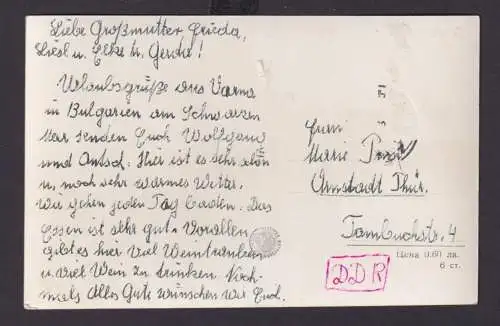 Liebe Großmutter Frieda,
Liesl u. Elke u. Gerda!
Urlaubsgrüße aus Varna
in Bulgarien am Schwarzen
Meer senden Euch Wolfgang
und Hier ist es sehr schön
u. noch sehr warmes Wetter.
Wir gehen jeden Tag baden. Das
Essen ist sehr gut. Vor allem
gibt es hier viel Weintrauben
u. viel Wein zu trinken. Noch-
mals Alles Gute wünschen wir Euch.
Marie
Arnstadt Thür.
Tambuchstr. 4
Цена 0.60 лв.
6 ст.
DDR